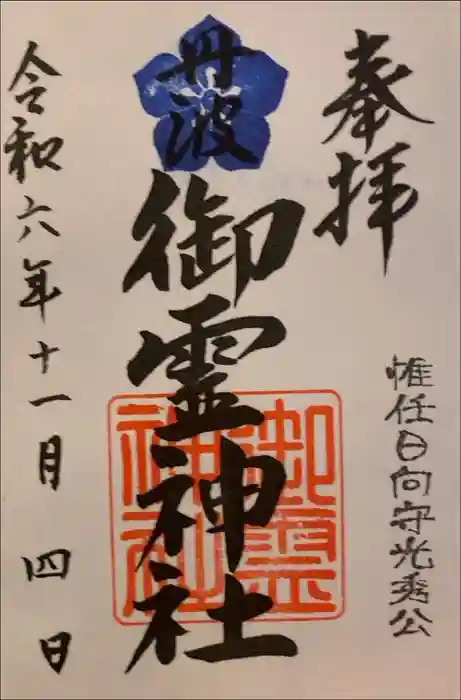 奉拝
惟任日向守光秀公
丹波
御霊神社
御霊
神社
令和六年十一月四日